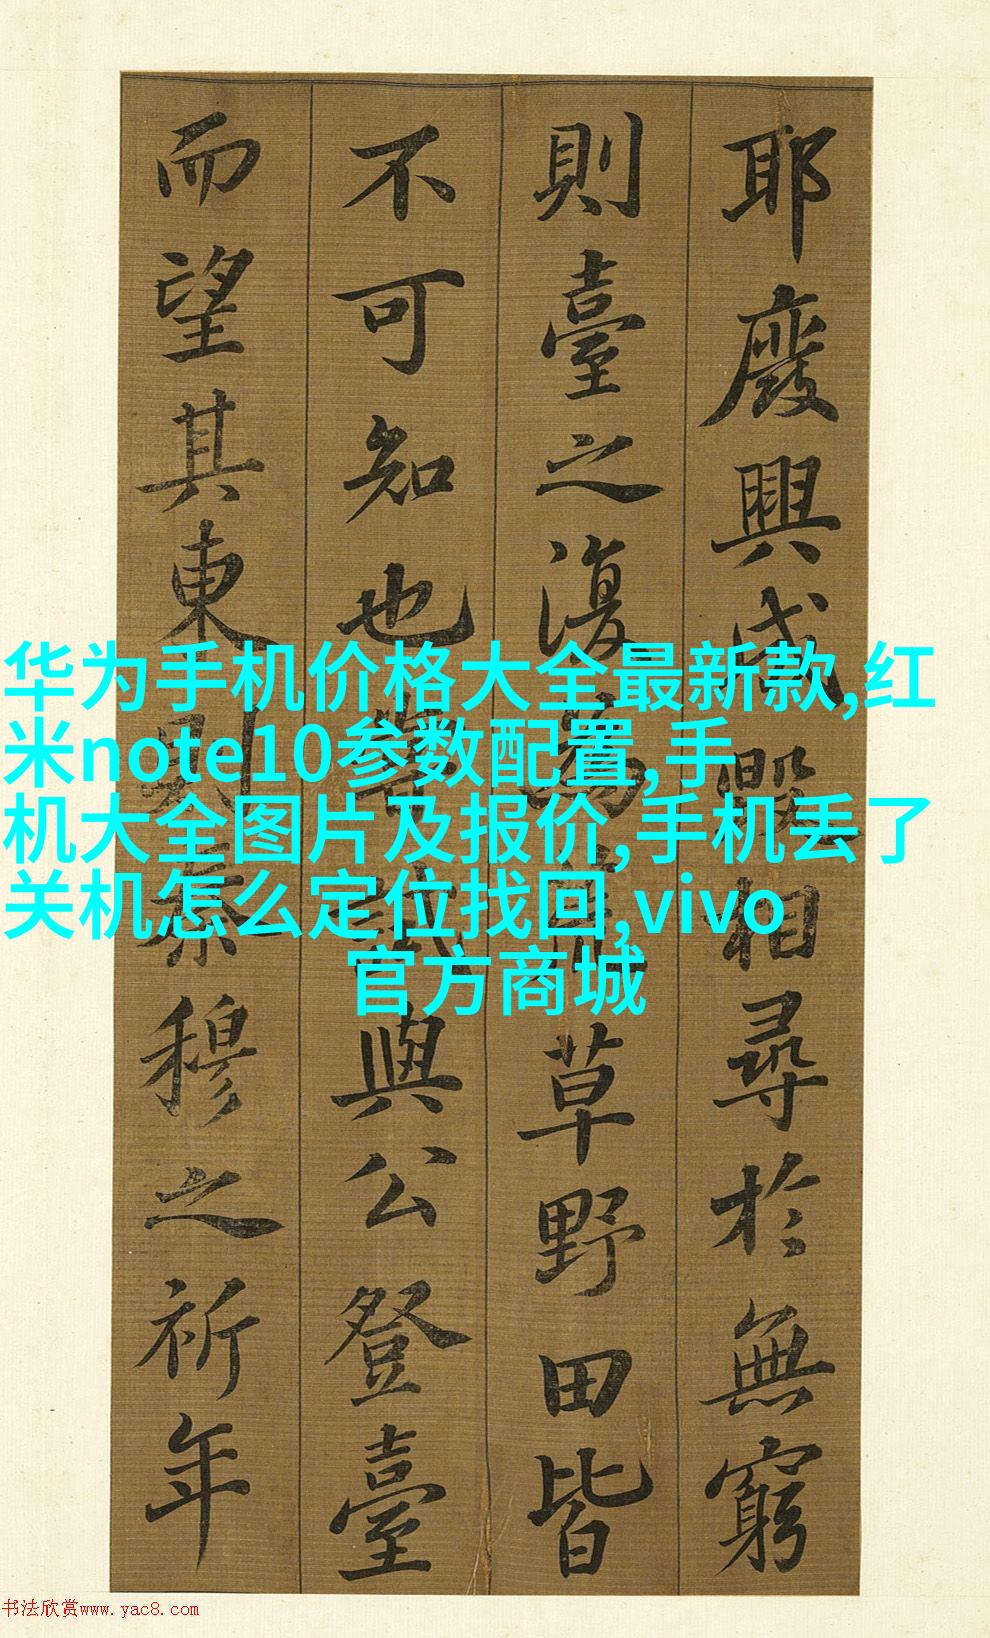 耶廢興成毀相尋於無窮
則臺之復為荒草野田皆
不可知也嘗試與公登臺
而望其東則秦穆之祈年
华为手机价格大全最新款,红
米note10参数配置,手
机大全图片及报价,手机丢了
关机怎么定位找回,vivo
官方商城
书法欣赏www.yac8.com